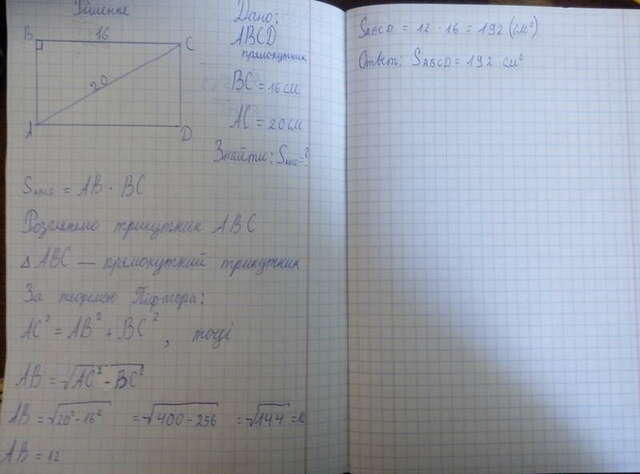 Рішення
B 16 C
20
A D
Дано:
ABCD
прямокутник
BC = 16 см
AC = 20 см
Знайти: S = ?
S = AB · BC
Розглянемо трикутник ABC
△ABC — прямокутний трикутник
За теоремою Піфагора:
AC² = AB² + BC², тоді
AB = √AC² - BC²
AB = √20² - 16² = √400 - 256 = √144 = 12
AB = 12
SABCD = 12 · 16 = 192 (см²)
Ответ: SABCD = 192 см²